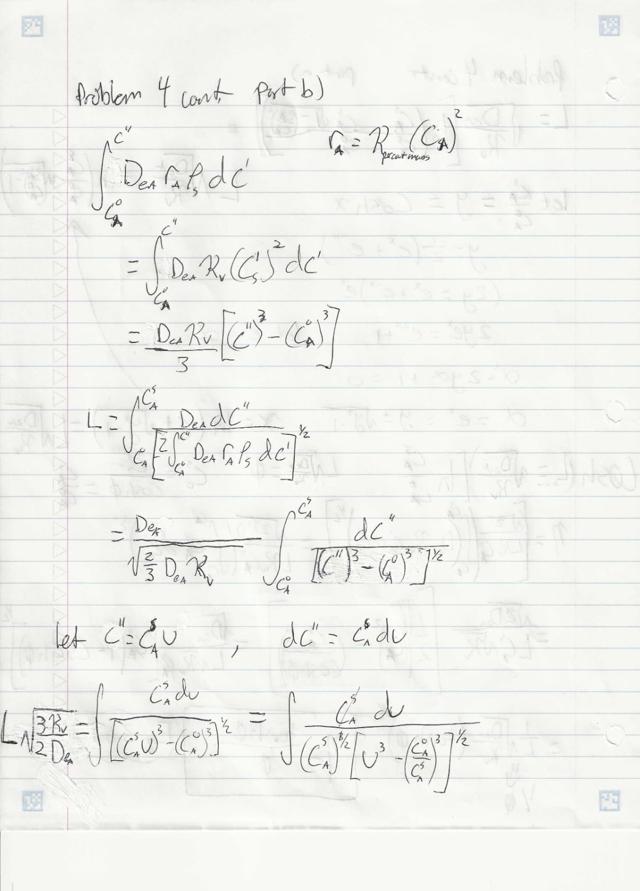 Problem 4 cont. part b)
r_A = K_per cat mass (C_A)^2
∫_{C_A^o}^{C''} D_eA r_A ρ_s dC'
= ∫_{C_A^o}^{C''} D_eA K_v (C_s')^2 dC'
= D_eA K_v / 3 [(C'')^3 - (C_A^o)^3]
L = ∫_{C_A^o}^{C_A^s} D_eA dC'' / [2 ∫_{C_A^o}^{C''} D_eA r_A ρ_s dC']^{1/2}
= D_eA / √(2/3 D_eA K_v) ∫_{C_A^o}^{C_A^s} dC'' / [(C'')^3 - (C_A^o)^3]^{1/2}
Let C'' = C_A^s U , dC'' = C_A^s dU
L √(3 K_v / 2 D_eA) = ∫ C_A^s dU / [(C_A^s U)^3 - (C_A^o)^3]^{1/2} = ∫ C_A^s dU / (C_A^s)^{3/2} [U^3 - (C_A^o / C_A^s)^3]^{1/2}